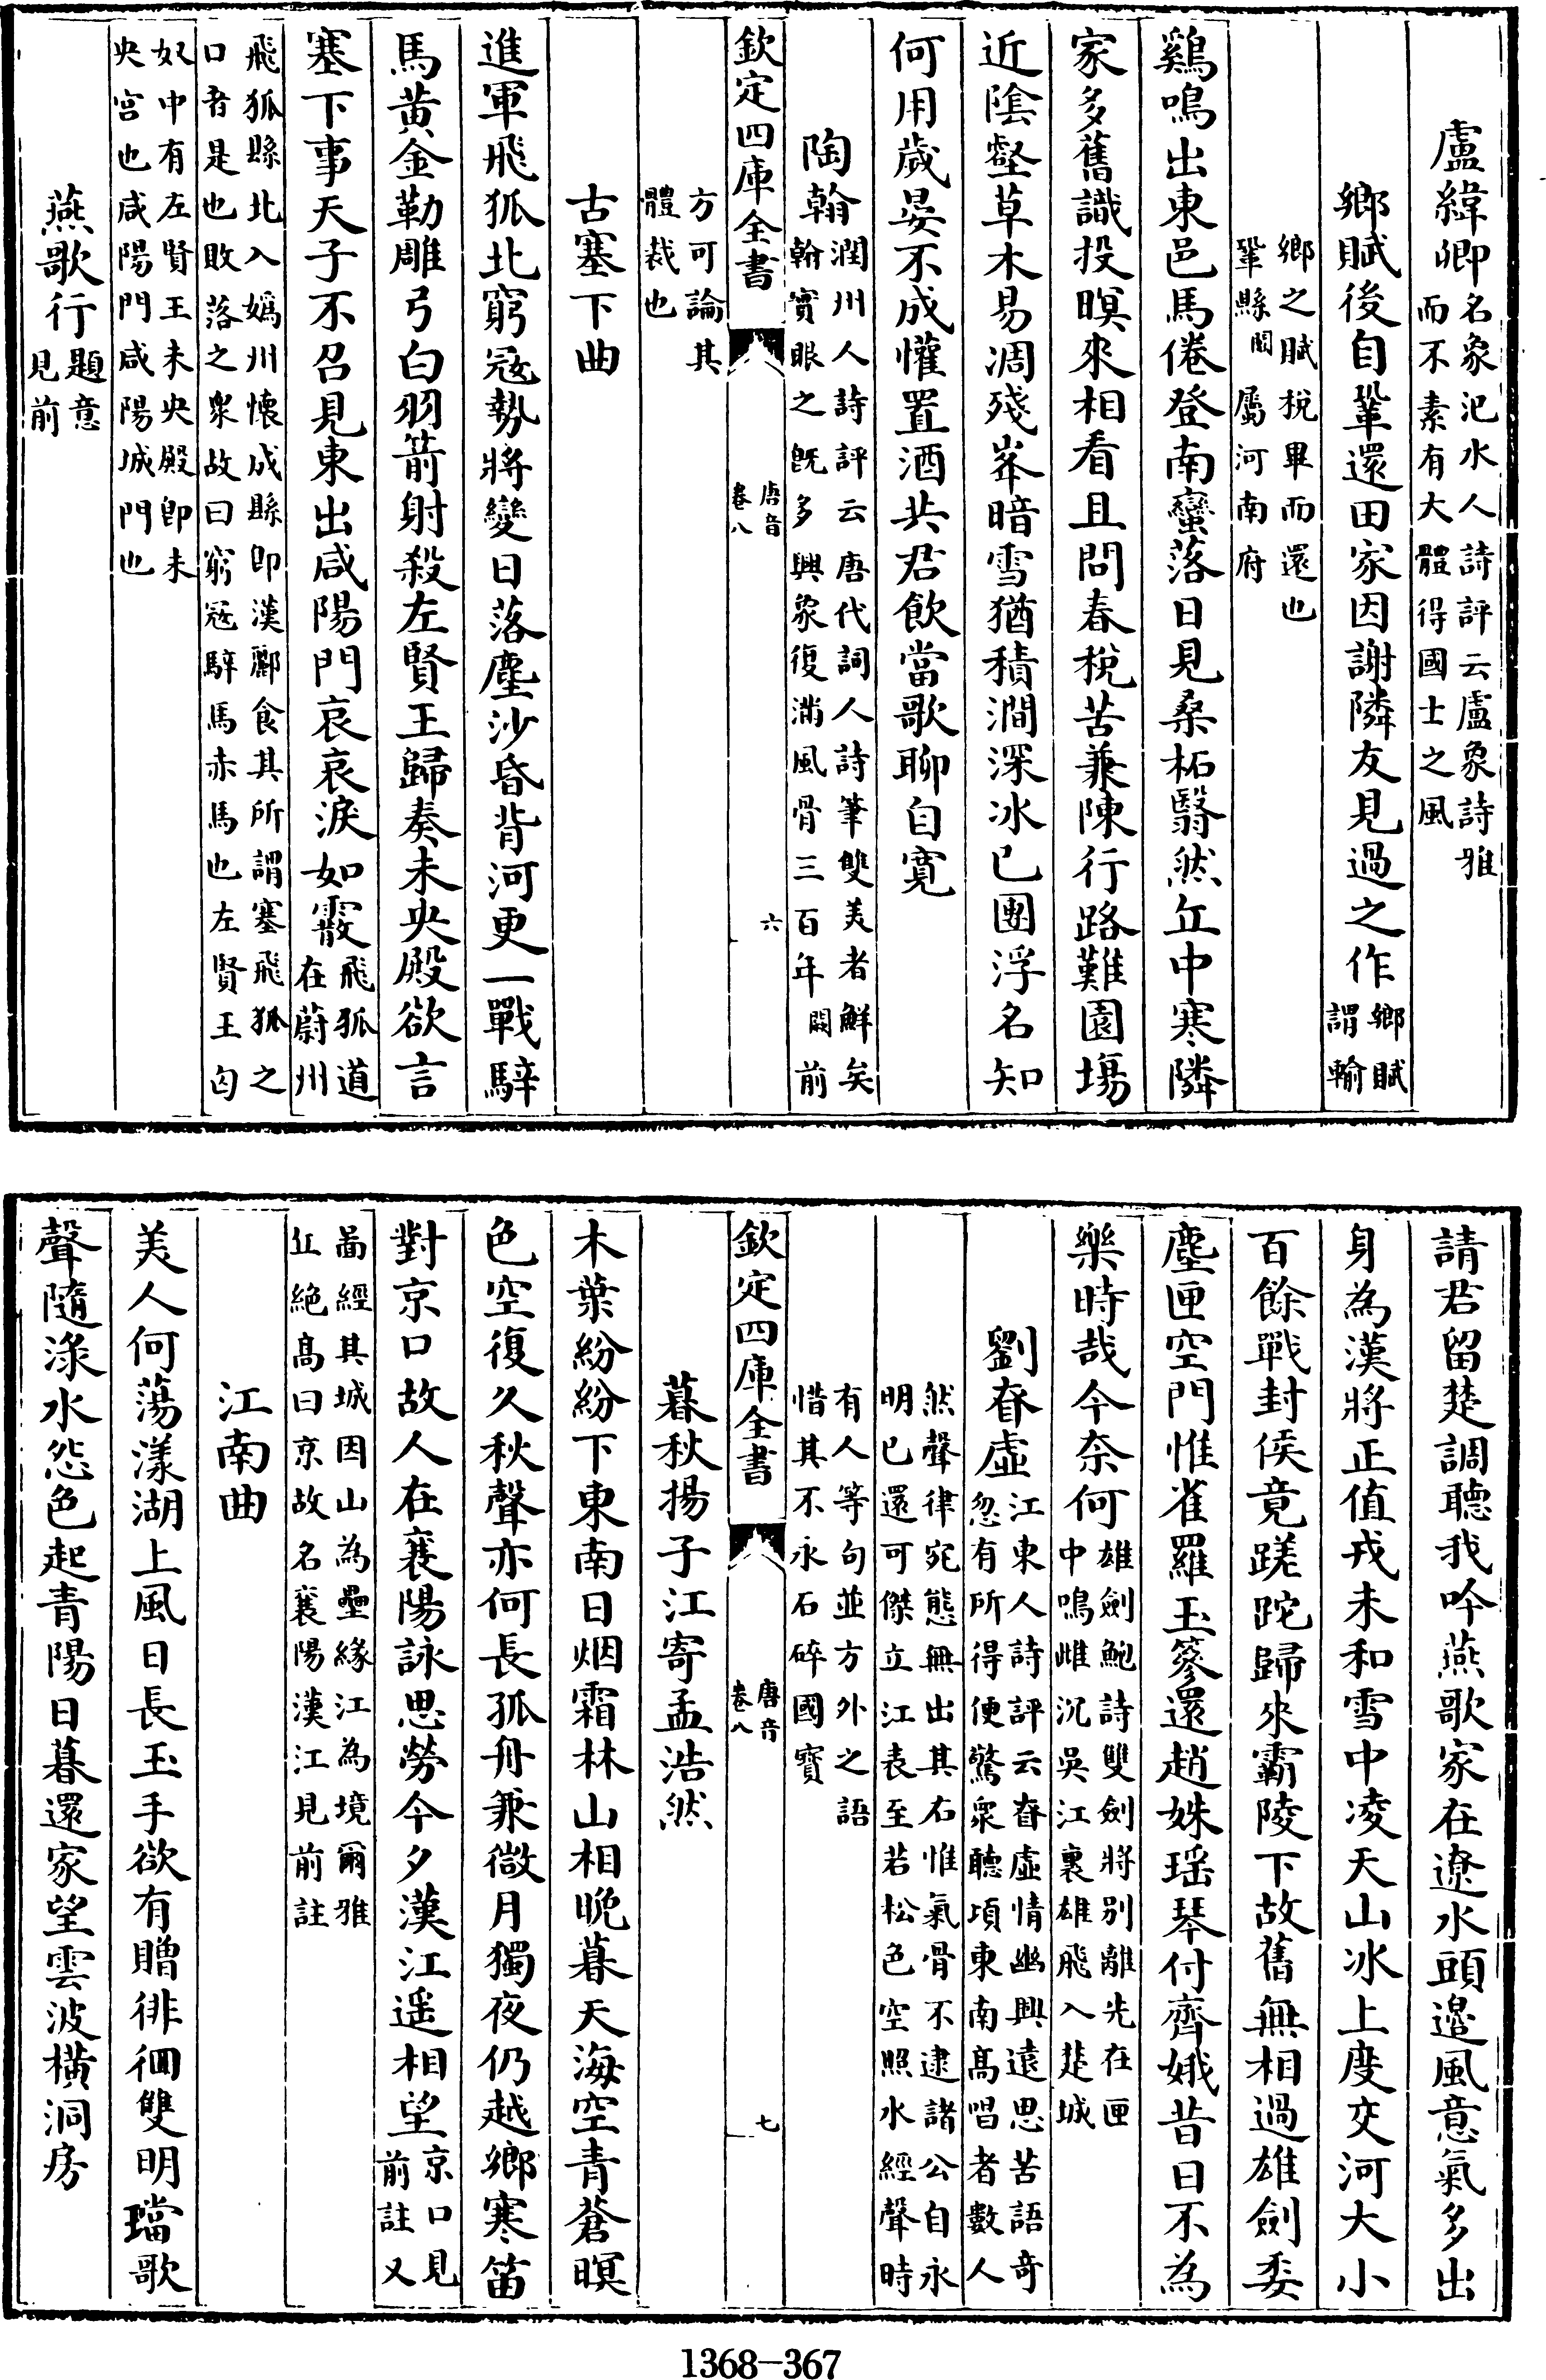 盧緯卿名象汜水人詩評云盧象詩雅而不素有大體得國士之風
鄉賦後自鞏還田家因謝隣友見過之作鄉賦謂輸
鄉之賦稅畢而還也鞏縣闕屬河南府
鷄鳴出東邑馬倦登南巒落日見桑柘翳然丘中寒隣
家多舊識投暝來相看且問春稅苦兼陳行路難園塲
近陰壑草木易凋殘峯暗雪猶積澗深冰已團浮名知
何用歲晏不成懽置酒共君飲當歌聊自寬
陶翰潤州人詩評云唐代詞人詩筆雙美者鮮矣翰實眼之旣多興象復滿風骨三百年闕前
欽定四庫全書 唐音卷八 六
方可論其體裁也
古塞下曲
進軍飛狐北窮冦勢將變日落塵沙昏背河更一戰騂
馬黃金勒雕弓白羽箭射殺左賢王歸奏未央殿欲言
塞下事天子不召見東出咸陽門哀哀淚如霰飛狐道在蔚州
飛狐縣北入嬀州懷戎縣即漢酈食其所謂塞飛狐之口者是也敗落之衆故曰窮冦騂馬赤馬也左賢王匈
奴中有左賢王未央殿即未央宮也咸陽門咸陽城門也
燕歌行題意見前
請君留楚調聽我吟燕歌家在遼水頭邉風意氣多出
身為漢將正值戎未和雪中凌天山冰上度交河大小
百餘戰封侯竟蹉跎歸來霸陵下故舊無相過雄劍委
塵匣空門惟雀羅玉簪還趙姝瑶琴付齊娥昔日不為
樂時哉今奈何雄劍鮑詩雙劍將别離先在匣中鳴雌沉吳江裏雄飛入楚城
劉眘虛江東人詩評云眘虛情幽興遠思苦語奇忽有所得便驚衆聽項東南高唱者數人
然聲律宛態無出其右惟氣骨不逮諸公自永明已還可傑立江表至若松色空照水經聲時
有人等句並方外之語惜其不永石碎國寶
欽定四庫全書 唐音卷八 七
暮秋揚子江寄孟浩然
木葉紛紛下東南日烟霜林山相晚暮天海空青蒼暝
色空復久秋聲亦何長孤舟兼微月獨夜仍越鄉寒笛
對京口故人在襄陽詠思勞今夕漢江遥相望京口見前註又
啚經其城因山為壘緣江為境爾雅丘絶髙曰京故名襄陽漢江見前註
江南曲
美人何蕩漾湖上風日長玉手欲有贈徘徊雙明璫歌
聲隨渌水怨色起青陽日暮還家望雲波橫洞房
1368—367